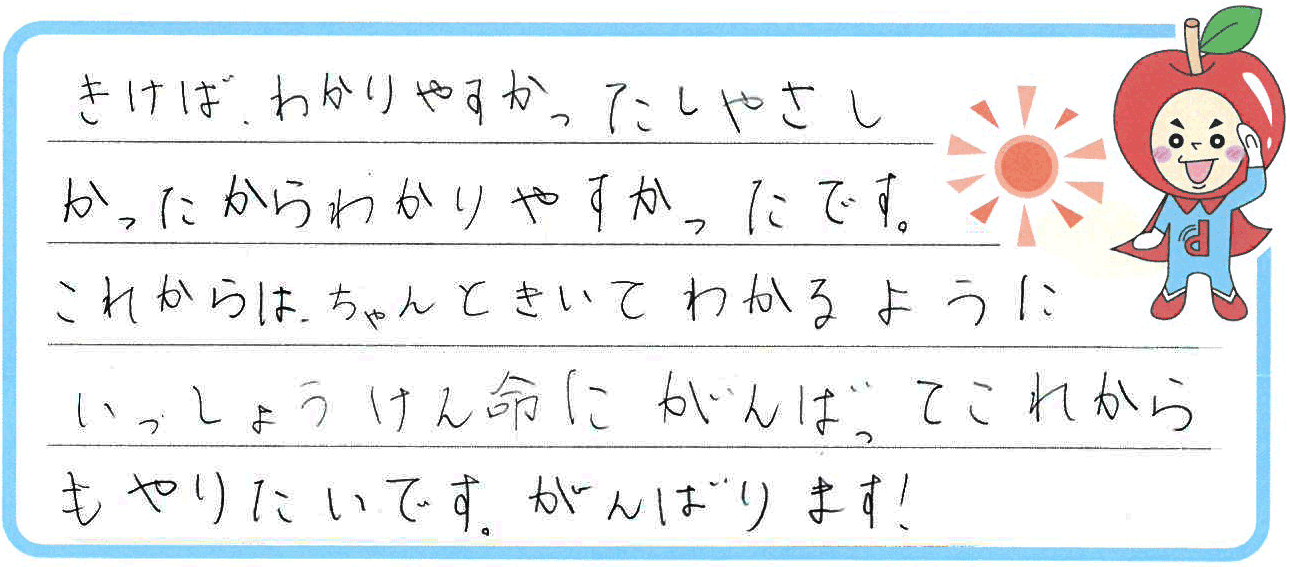 きけば、わかりやすかったしやさし
かったからわかりやすかったです。
これからは、ちゃんときいてわかるように
いっしょうけん命にがんばってこれから
もやりたいです。がんばります!